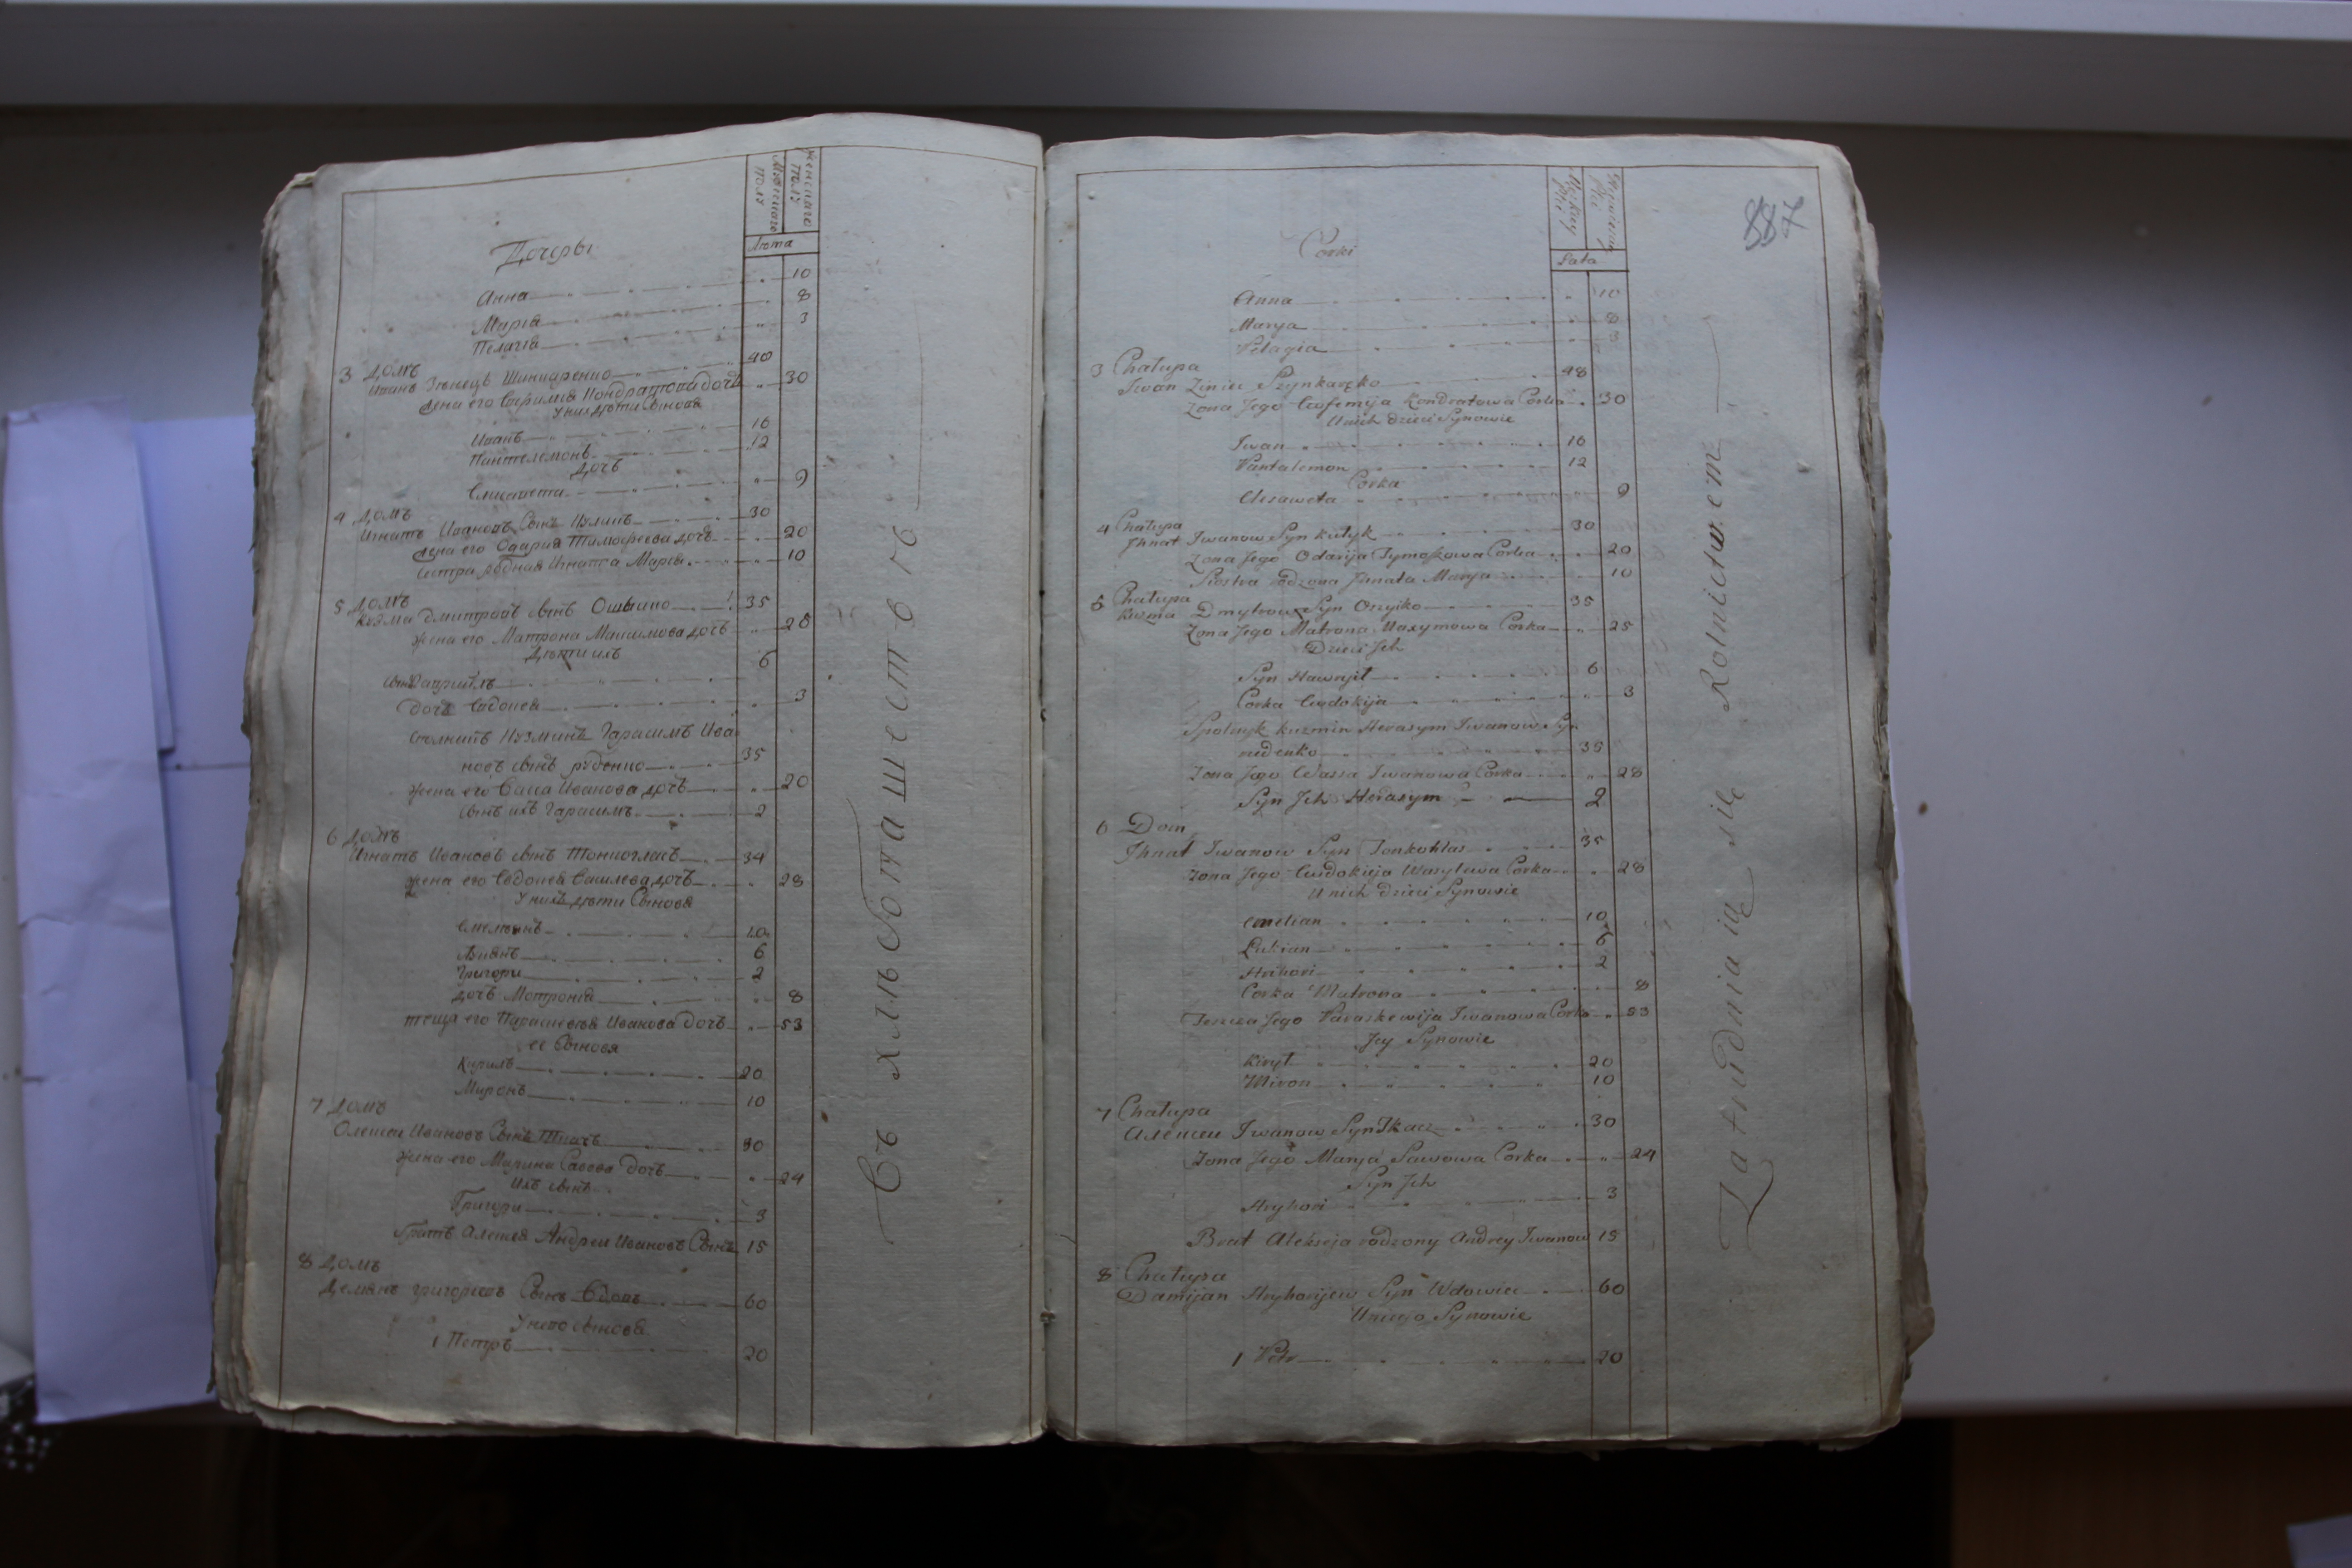 Мужескаго полу
Женскаго полу
Лѣта
Дочеры
Анна 10
Марія 8
Пелагія 3
3 Домъ
Иванъ Зѣнецъ Шинкаренко 40
Жена его Ефимія Кондратова дочь 30
У них дѣти Сынове
Иванъ 16
Пантелемонъ 12
Дочь
Елисавета 9
4 Домъ
Игнатъ Ивановъ Сынъ Куликъ 30
Жена его Одарія Тимофеева дочь 20
Сестра родная Игната Марія 10
5 Домъ
Кузма Дмитровъ сынъ Ошыико 35
Жена его Матрона Максимова дочь 28
Дѣти ихъ
Сынъ Гавриилъ 6
Дочь Евдокея 3
Сполникъ Кузминъ Гарасимъ Ива
новъ сынъ руденко 35
Жена его Васса Иванова дочь 20
Сынъ ихъ Гарасимъ 2
6 Домъ
Игнатъ Ивановъ сынъ Тонкогласъ 34
Жена его Евдокея Василева дочь 28
У нихъ дѣти Сынове
Емельянъ 10
Лукянъ 6
Григори 2
дочь Мотронія 8
теща его Параскевія Иванова Дочь 53
ее Сыновя
Кирилъ 20
Миронъ 10
7 Домъ
Олексеи Ивановъ Сынъ Ткачъ 30
Жена его Марина Савова дочь 24
Ихъ сынъ
Григори 3
братъ Алексея Андреи Ивановъ Сынъ 15
8 Домъ
Демянъ григориевъ Сынъ Вдовъ 60
У него сыновя
1 Петръ 20
Съ хлѣбопашества
887
Męskiey płci
Lata
Corki
Anna 10
Marya 8
Pelagia 3
3 Chałupa
Iwan Ziniec Szynkaręko 48
Zona Jego Eufemija Kondratowa Corka 30
U nich dzieci Synowie
Iwan 16
Pantalemon 12
Corka
Elizaweta 9
4 Chałupa
Jhnat Iwanow Syn Kulyk 30
Zona Jego Odarija Tymofiowa Corka 20
Siostra rodzona Jhnata Marya 10
5 Chałupa
Kuzma Dmytrow Syn Oszyiko 35
Zona Jego Matrona Maxymowa Corka 25
Dzieci Jch
Syn Hawryił 6
Corka Eudokija 3
Spolnyk Kuzmin Herasym Iwanow Syn
rudenko 35
Zona Jego Wassa Iwanowa Corka 28
Syn Jch Herasym 2
6 Dom
Jhnat Iwanow Syn Tonkohłas 35
Zona Jego Eudokieja Wasylewa Corka 28
U nich dzieci Synowie
Emelian 10
Łukian 6
Hrihori 2
Corka Matrona 8
Teszcza Jego Paraskewija Iwanowa Corka 53
Jey Synowie
Kirył 20
Miron 10
7 Chałupa
Алексеи Iwanow Syn Tkacz 30
Zona Jego Marya Sawowa Corka 24
Syn Jch
Hryhori 3
Brat Alekseja rodzony Andrey Iwanow 15
8 Chałupa
Damijan Hryhorijew Syn Wdowiec 60
U niego Synowie
1 Petr 20
Zatrudnia ią się Rolnictwem